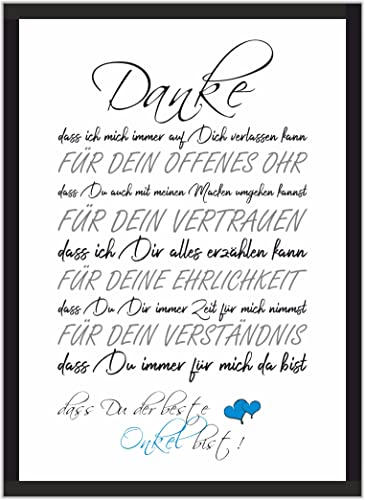 Danke
dass ich mich immer auf Dich verlassen kann
FÜR DEIN OFFENES OHR
dass Du auch mit meinen Macken umgehen kannst
FÜR DEIN VERTRAUEN
dass ich Dir alles erzählen kann
FÜR DEINE EHRLICHKEIT
dass Du Dir immer Zeit für mich nimmst
FÜR DEIN VERSTÄNDNIS
dass Du immer für mich da bist
dass Du der beste
Onkel bist!